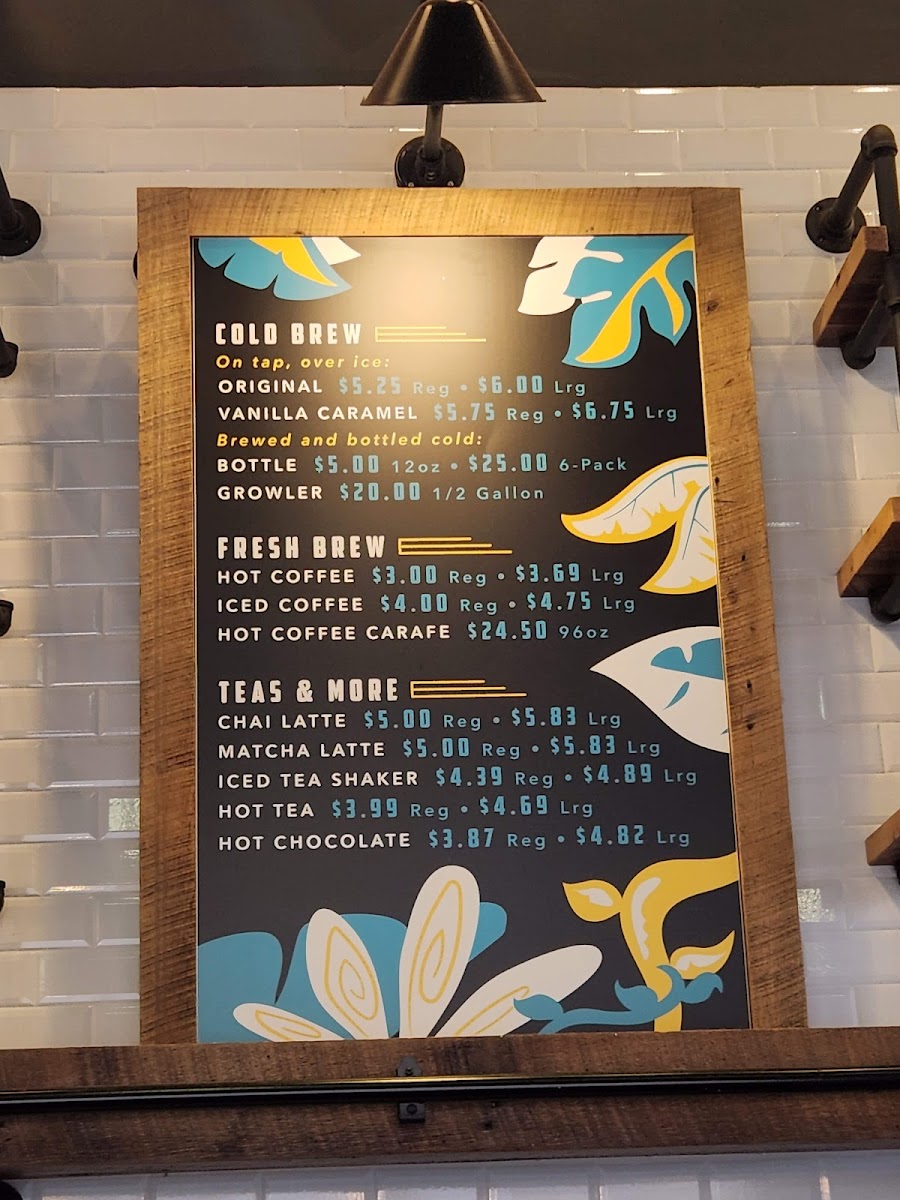 COLD BREW
On tap, over ice:
ORIGINAL $5.25 Reg • $6.00 Lrg
VANILLA CARAMEL $5.75 Reg • $6.75 Lrg
Brewed and bottled cold:
BOTTLE $5.00 12oz • $25.00 6-Pack
GROWLER $20.00 1/2 Gallon
FRESH BREW
HOT COFFEE $3.00 Reg • $3.69 Lrg
ICED COFFEE $4.00 Reg • $4.75 Lrg
HOT COFFEE CARAFE $24.50 96oz
TEAS & MORE
CHAI LATTE $5.00 Reg • $5.83 Lrg
MATCHA LATTE $5.00 Reg • $5.83 Lrg
ICED TEA SHAKER $4.39 Reg • $4.89 Lrg
HOT TEA $3.99 Reg • $4.69 Lrg
HOT CHOCOLATE $3.87 Reg • $4.82 Lrg